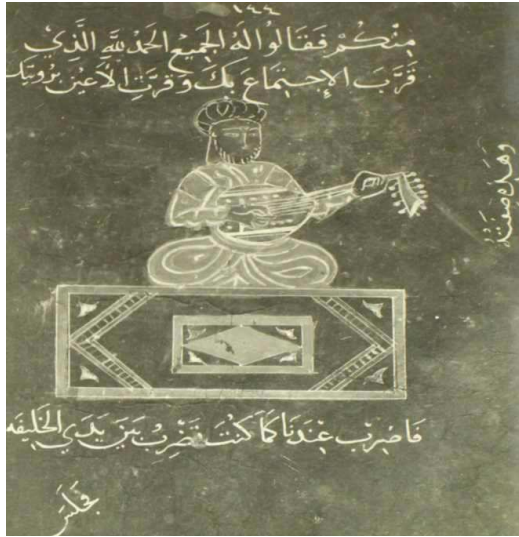 ١٤٤
مِنْكُمْ فَقَالُوا لَهُ الْجَمِيعِ الْحَمْدُ لِلَّهِ الَّذِي
قَرَّبَ الإِجْتِمَاعَ بِكَ وَقَرَّتِ الأَعْيُن بِرُوِيتِكَ
وهذه صفته
فَاضْرِب عِنْدَنَا كَمَا كُنْتَ تَضْرِبُ بَيْنَ يَدَيِ الْخَلِيفَه
فجلس